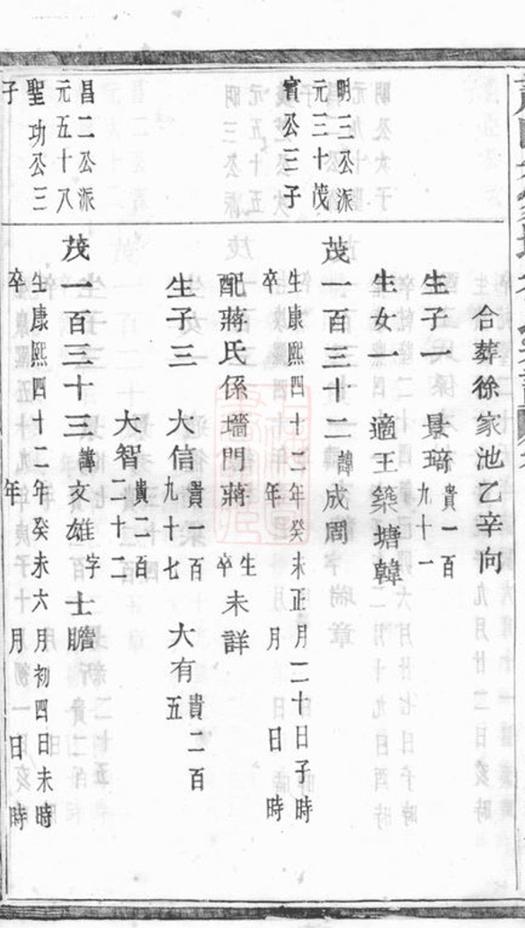 合葬徐家池乙辛向
生子一　景琦貴一百九十一
生女一　適王築塘韓
明三公派
元三十茂
賓公三子
茂一百三十二諱成周
生康熙四十二年癸未正月二十日子時
卒　年　月　日　時
配蔣氏係墻門蔣　生卒未詳
生子三　大信貴一百九十七　大有貴二百五
大智貴二百二十二
昌二公派
元五十八
聖功公三
子
茂一百三十三諱文雄字士贍
生康熙四十二年癸未六月初四日未時
卒　年　月　日　時